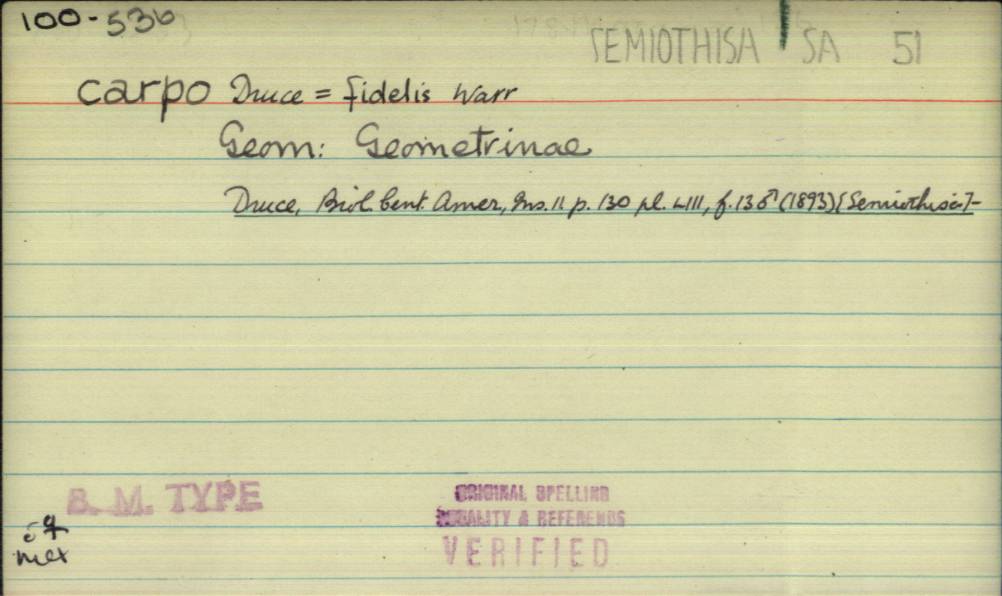 100-536
SEMIOTHISA SA 51
carpo Druce = fidelis Warr
Geom: Geometrinae
Druce, Biol. Cent. Amer, Ins. 11 p. 130 pl. LIII, f. 13 ♂ (1893) [Semiothisa]-
B. M. TYPE
ORIGINAL SPELLING
LOCALITY & REFERENCE
VERIFIED
♀
Mex